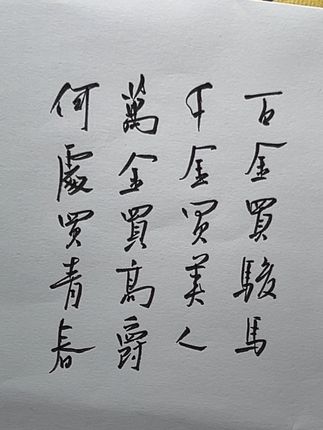 百金買駿馬
千金買美人
萬金買高爵
何處買青春